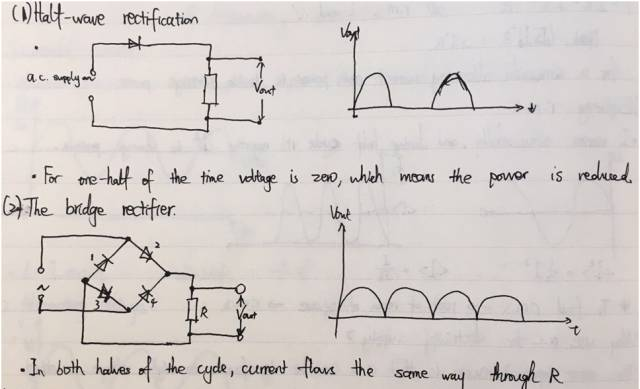 (1) Half-wave rectification
a.c. supply
Vout
Vout
t
• For one-half of the time voltage is zero, which means the power is reduced.
(2) The bridge rectifier.
1
2
3
4
~
R
Vout
Vout
t
• In both halves of the cycle, current flows the same way through R